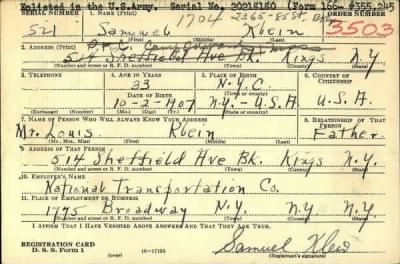 Enlisted in the U.S.Army. Serial No. 20218180 (Form 166- 6355,245
SERIAL NUMBER 1. NAME (Print) 1704 2365-85St. ORDER NUMBER
521 Samuel Klein 3503
(First) (Middle) (Last)
2. ADDRESS (Print)
514 Sheffield Ave Bk. Kings N.Y
(Number and street or R. F. D. number) (Town) (County) (State)
3. TELEPHONE 4. AGE IN YEARS 5. PLACE OF BIRTH 6. COUNTRY OF CITIZENSHIP
33 N.Y.C.
DATE OF BIRTH (Town or county)
10-2-1907 N.Y.-U.S.A. U.S.A.
(Exchange) (Number) (Mo.) (Day) (Yr.) (State or country)
7. NAME OF PERSON WHO WILL ALWAYS KNOW YOUR ADDRESS 8. RELATIONSHIP OF THAT PERSON
Mr. Louis Klein Father
(Mr., Mrs., Miss) (First) (Middle) (Last)
9. ADDRESS OF THAT PERSON
514 Sheffield Ave Bk. Kings N.Y.
(Number and street or R. F. D. number) (Town) (County) (State)
10. EMPLOYER'S NAME
National Transportation Co.
11. PLACE OF EMPLOYMENT OR BUSINESS
1775 Broadway N.Y. N.Y N.Y
(Number and street or R. F. D. number) (Town) (County) (State)
I AFFIRM THAT I HAVE VERIFIED ABOVE ANSWERS AND THAT THEY ARE TRUE.
REGISTRATION CARD
D. S. S. Form 1 16-17105 Samuel Klein
(Registrant's signature)